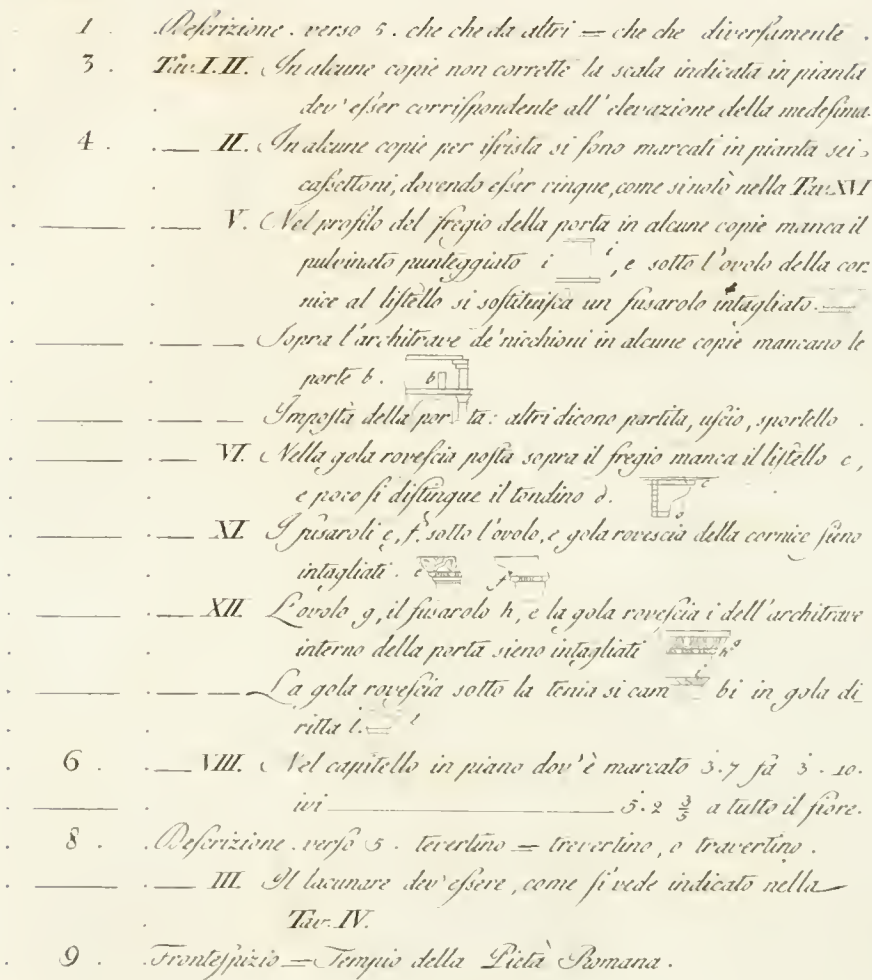 1 . Descrizione . verso 5 . che che da altri = che che diversamente .
3 . Tav. I. II. In alcune copie non corrette la scala indicata in pianta
dev' esser corrispondente all' elevazione della medesima.
4 . — II. In alcune copie per isvista si sono marcati in pianta sei
cassettoni, dovendo esser cinque, come si notò nella Tav. XVI
— . — V. Nel profilo del fregio della porta in alcune copie manca il
pulvinato punteggiato i i , e sotto l'ovolo della cor:
nice al listello si sostituisca un fusarolo intagliato.
— . — Sopra l'architrave de' nicchioni in alcune copie mancano le
porte b . b
— . — Imposta della por ta : altri dicono partita, uscio, sportello .
— . — VI. Nella gola rovescia posta sopra il fregio manca il listello c ,
e poco si distingue il tondino d . c d
— . — XI. I fusaroli e, f. sotto l'ovolo, e gola rovescia della cornice siano
intagliati . e f
— . — XII. L'ovolo g, il fusarolo h, e la gola rovescia i dell' architrave
interno della porta sieno intagliati g h
— . — La gola rovescia sotto la tenia si cam i bi in gola di_
ritta l. l
6 . — VIII. Nel capitello in piano dov' è marcato 3. 7 fa 3 . 10 .
ivi — 5. 2 3/5 a tutto il fiore.
8 . Descrizione . verso 5 . tevertino = trevertino , o travertino .
— . — III. Il lacunare dev' essere , come si vede indicato nella
Tav. IV.
9 . Frontespizio = Tempio della Pietà Romana .